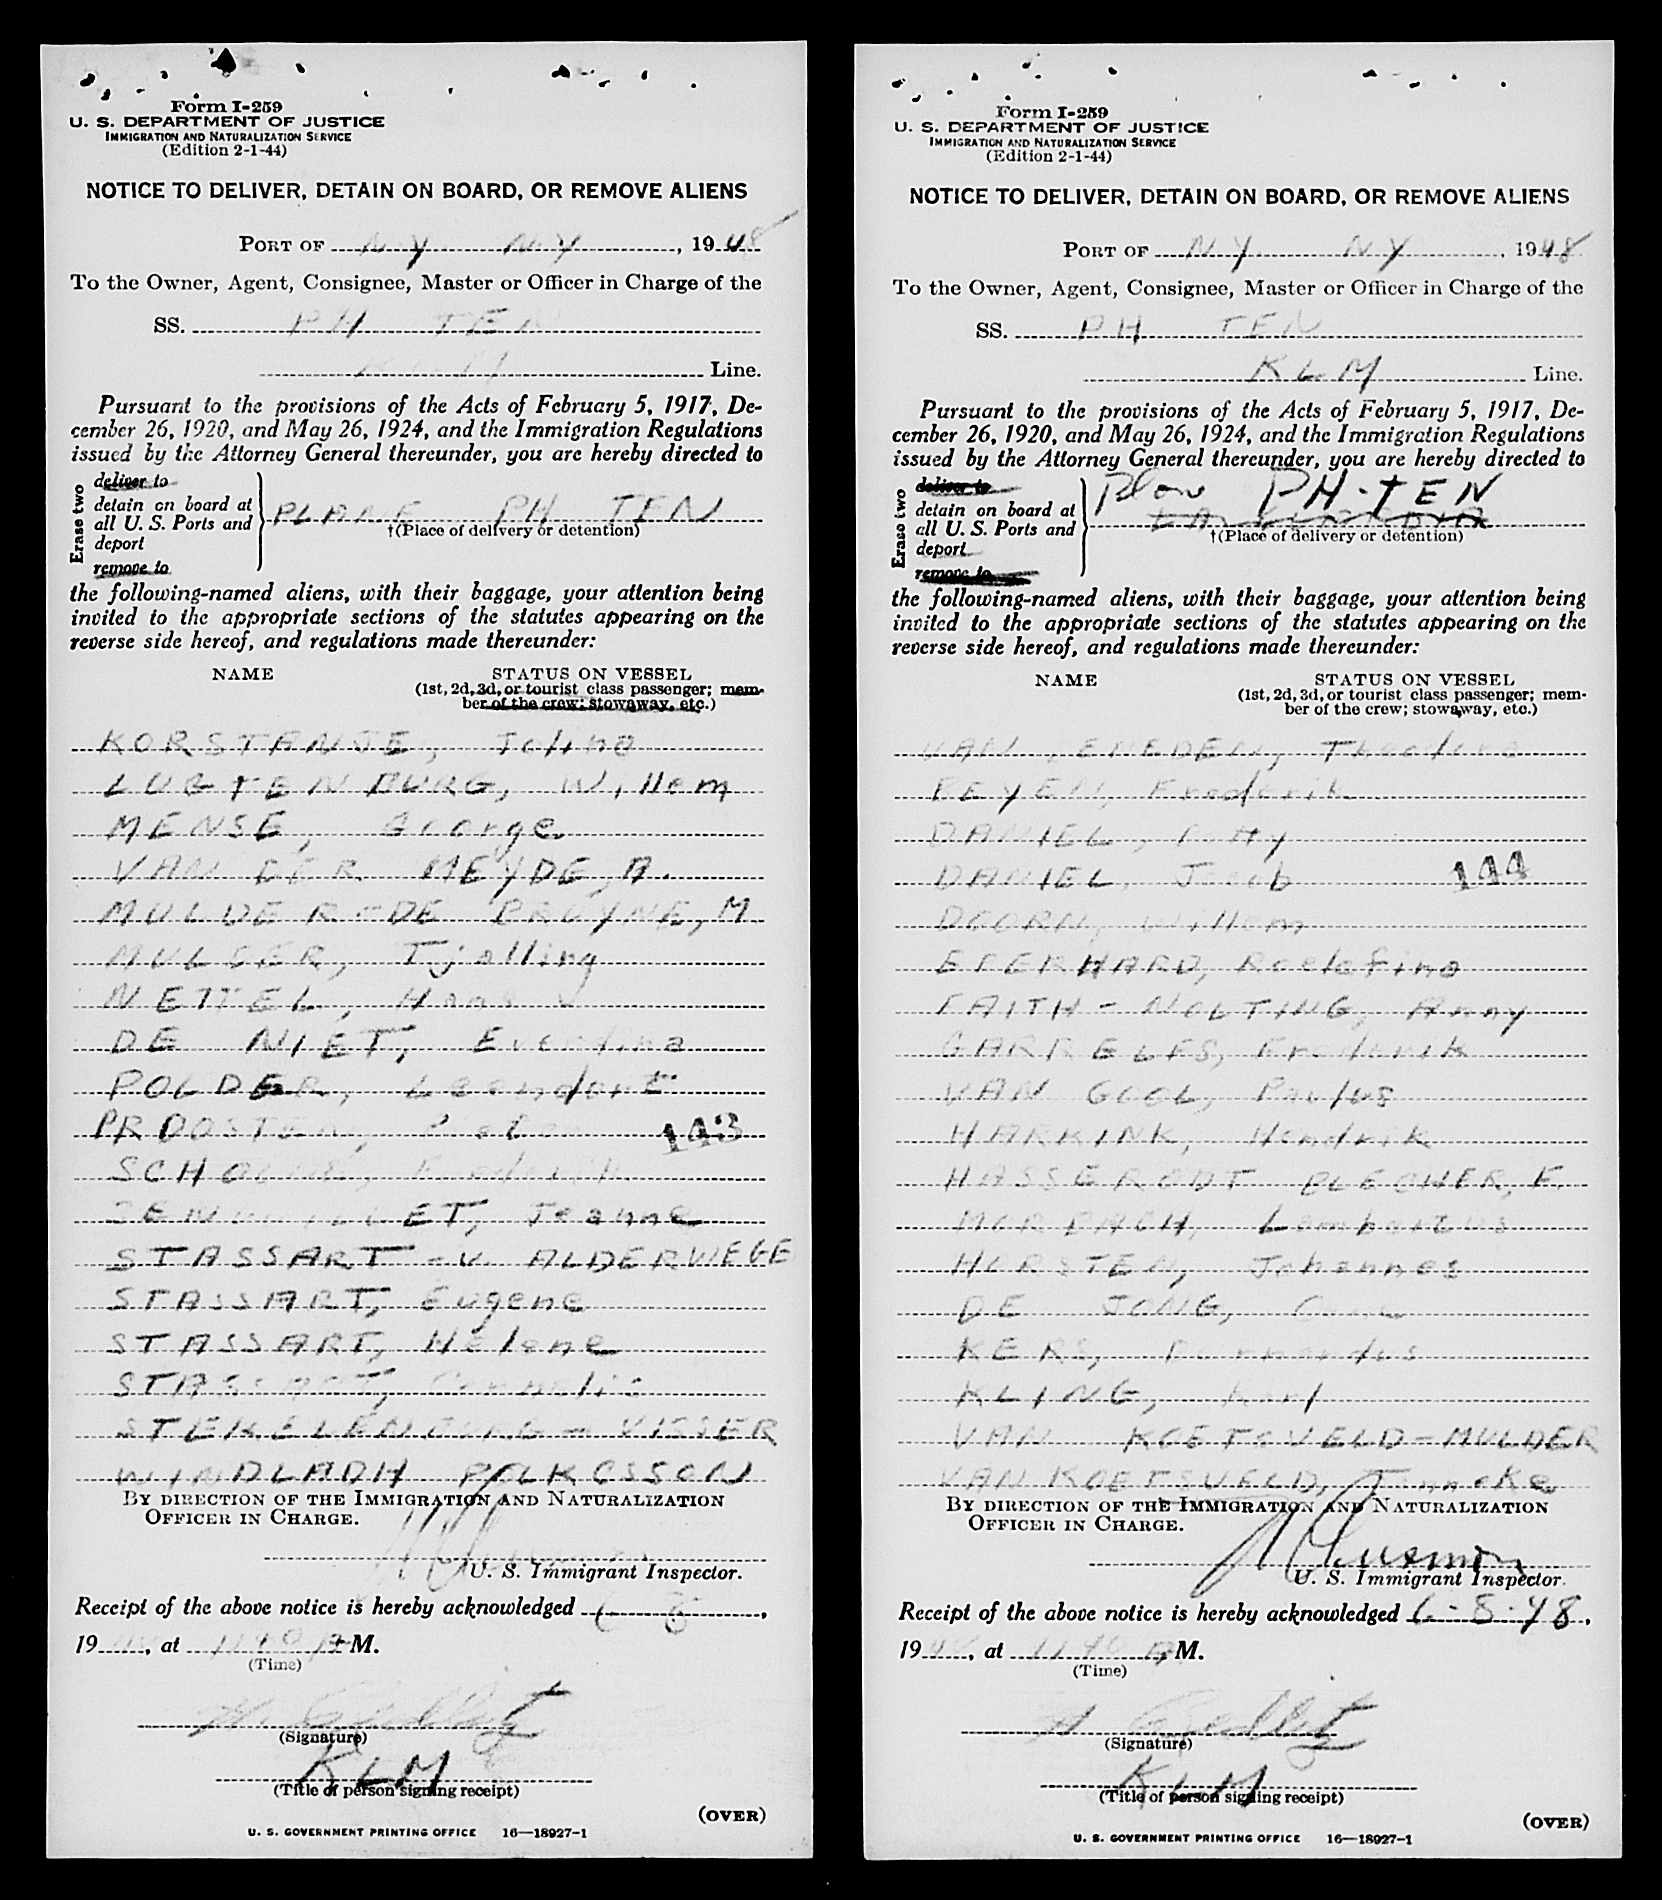 Form I-259
U. S. DEPARTMENT OF JUSTICE
IMMIGRATION AND NATURALIZATION SERVICE
(Edition 2-1-44)
NOTICE TO DELIVER, DETAIN ON BOARD, OR REMOVE ALIENS
PORT OF NY NY, 1948
To the Owner, Agent, Consignee, Master or Officer in Charge of the
SS. PH TEN
Line.
Pursuant to the provisions of the Acts of February 5, 1917, De-
cember 26, 1920, and May 26, 1924, and the Immigration Regulations
issued by the Attorney General thereunder, you are hereby directed to
Erase two
deliver to
detain on board at
all U. S. Ports and
deport
remove to
PLANE PH TEN
†(Place of delivery or detention)
the following-named aliens, with their baggage, your attention being
invited to the appropriate sections of the statutes appearing on the
reverse side hereof, and regulations made thereunder:
NAME STATUS ON VESSEL
(1st, 2d, 3d, or tourist class passenger; mem-
ber of the crew; stowaway, etc.)
KORSTANJE,
LUBTENBURG, Willem
MENSE, George
VAN DER MEYDE, A.
MULDER-DE PRUYNE, M
MULDER, Tjalling
NETTEL, Hans
DE NIET, Everdina
POLDER, Leendert
143
STASSART - v. ALDERWEGE
STASSART, Eugene
STASSART, Helene
STASSART, Cornelis
STEKELENBURG - VISSER
BY DIRECTION OF THE IMMIGRATION AND NATURALIZATION
OFFICER IN CHARGE.
U. S. Immigrant Inspector.
Receipt of the above notice is hereby acknowledged 6 8,
19, at 1140 A M.
(Time)
(Signature)
KLM
(Title of person signing receipt)
(OVER)
U. S. GOVERNMENT PRINTING OFFICE 16—18927-1
Form I-259
U. S. DEPARTMENT OF JUSTICE
IMMIGRATION AND NATURALIZATION SERVICE
(Edition 2-1-44)
NOTICE TO DELIVER, DETAIN ON BOARD, OR REMOVE ALIENS
PORT OF NY NY, 1948
To the Owner, Agent, Consignee, Master or Officer in Charge of the
SS. PH TEN
KLM Line.
Pursuant to the provisions of the Acts of February 5, 1917, De-
cember 26, 1920, and May 26, 1924, and the Immigration Regulations
issued by the Attorney General thereunder, you are hereby directed to
Erase two
deliver to
detain on board at
all U. S. Ports and
deport
remove to
PH-TEN
†(Place of delivery or detention)
the following-named aliens, with their baggage, your attention being
invited to the appropriate sections of the statutes appearing on the
reverse side hereof, and regulations made thereunder:
NAME STATUS ON VESSEL
(1st, 2d, 3d, or tourist class passenger; mem-
ber of the crew; stowaway, etc.)
VAN Theodora
BEYEN, Frederik
DANIEL,
DANIEL, Jacob 144
DOORN, Willem
EFERHARD, Roelofina
FAITH - NOLTING, Anny
GARRELFS, Frederik
VAN GOOL, Paulus
HARKINK, Hendrik
HASSERODT BLECHER, E.
Lambertus
HORSTEN, Johannes
DE JONG,
KERS,
KLING, Karl
VAN KOETSVELD - MULDER
VAN KOETSVELD, Janneke
BY DIRECTION OF THE IMMIGRATION AND NATURALIZATION
OFFICER IN CHARGE.
U. S. Immigrant Inspector.
Receipt of the above notice is hereby acknowledged 6-8-48,
1948, at 1140 A M.
(Time)
(Signature)
KLM
(Title of person signing receipt)
(OVER)
U. S. GOVERNMENT PRINTING OFFICE 16—18927-1